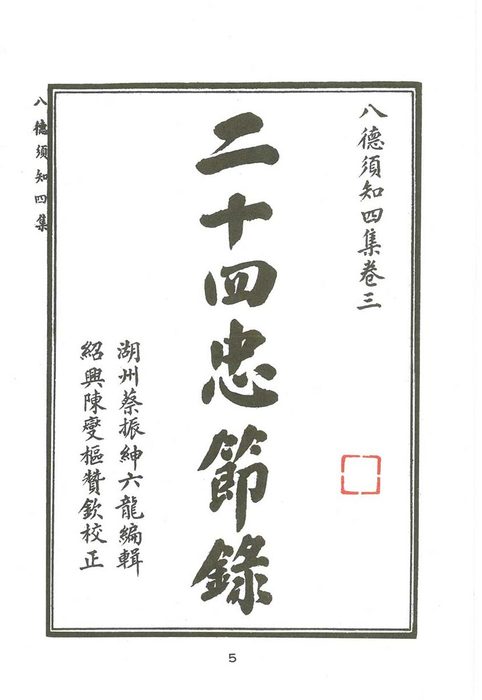 八德須知四集卷三
二十四忠節錄
湖州蔡振紳六龍編輯
紹興陳燮樞贊欽校正
八德須知四集
5